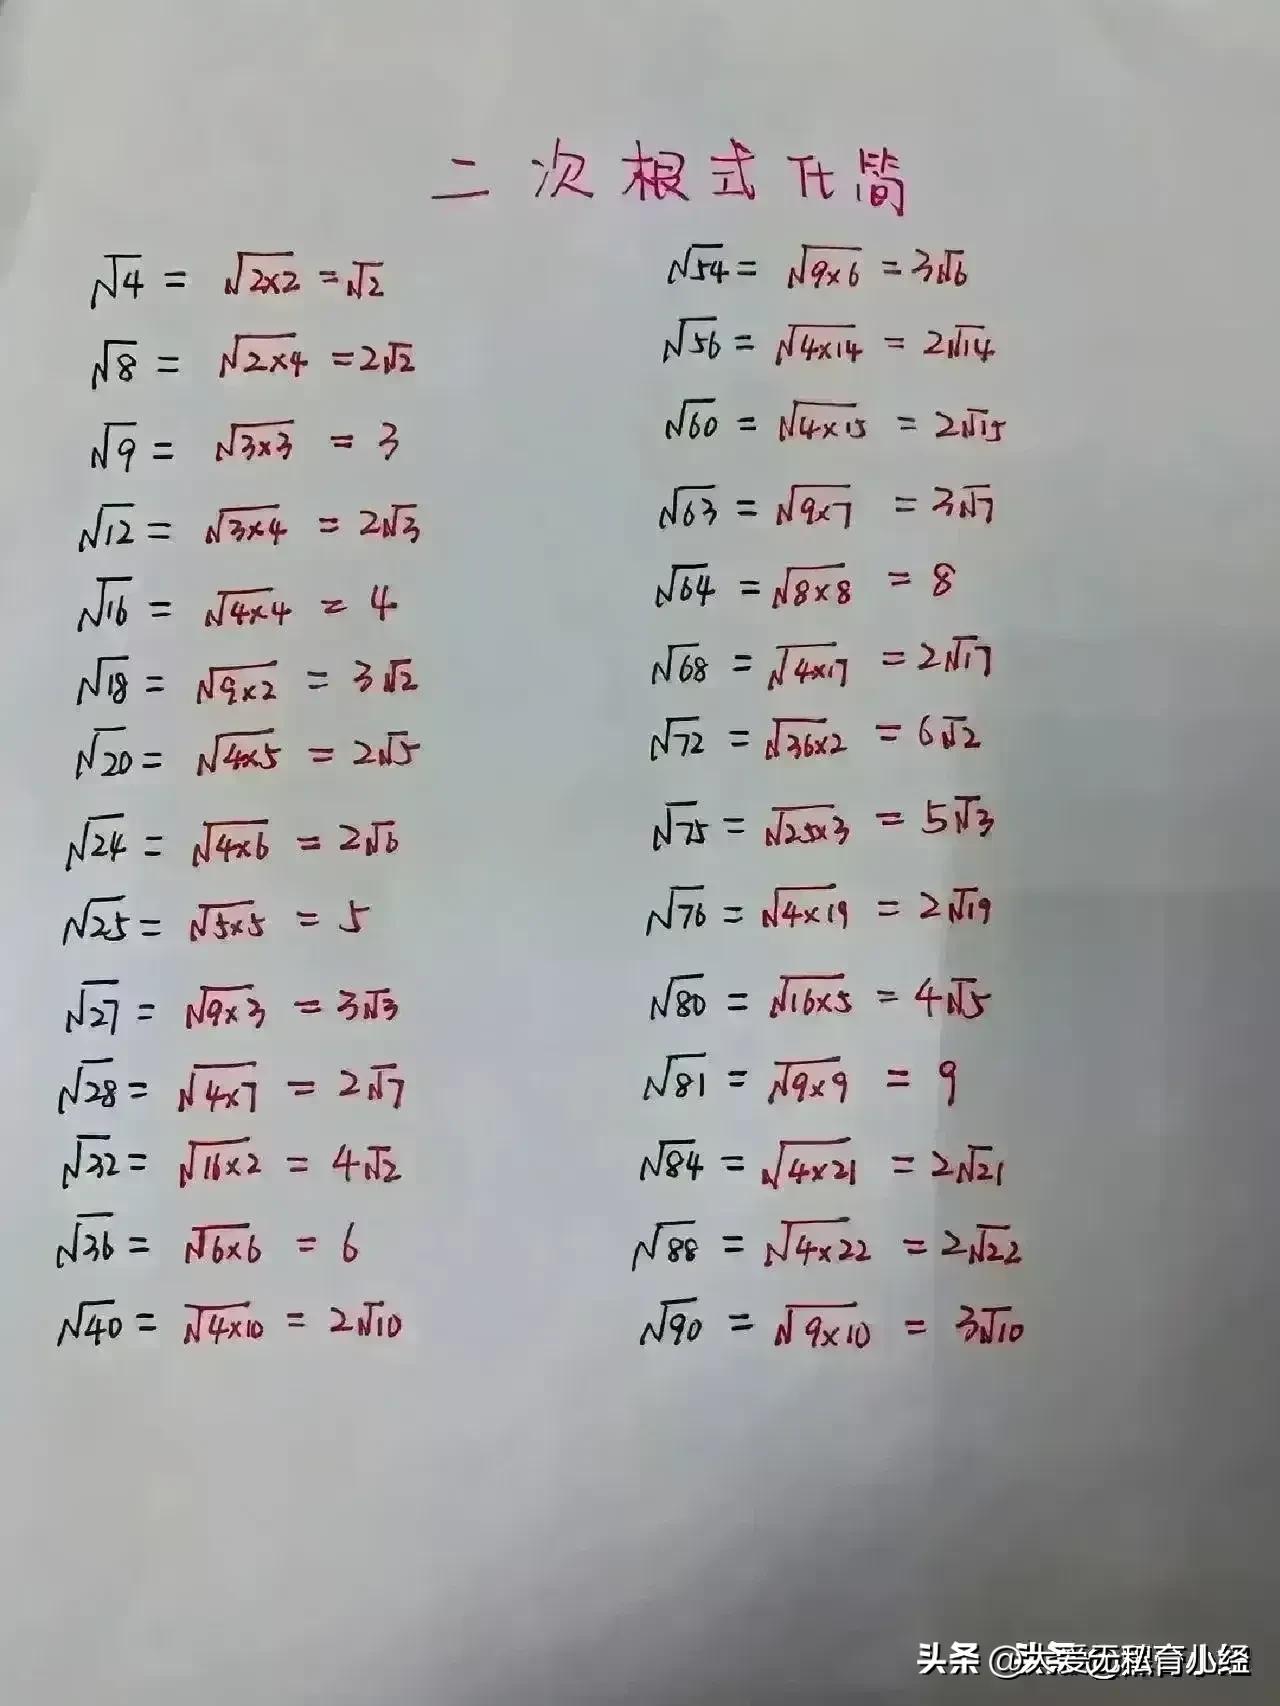 二次根式化简
√4 = √2×2 = √2
√8 = √2×4 = 2√2
√9 = √3×3 = 3
√12 = √3×4 = 2√3
√16 = √4×4 = 4
√18 = √9×2 = 3√2
√20 = √4×5 = 2√5
√24 = √4×6 = 2√6
√25 = √5×5 = 5
√27 = √9×3 = 3√3
√28 = √4×7 = 2√7
√32 = √16×2 = 4√2
√36 = √6×6 = 6
√40 = √4×10 = 2√10
√54 = √9×6 = 3√6
√56 = √4×14 = 2√14
√60 = √4×15 = 2√15
√63 = √9×7 = 3√7
√64 = √8×8 = 8
√68 = √4×17 = 2√17
√72 = √36×2 = 6√2
√75 = √25×3 = 5√3
√76 = √4×19 = 2√19
√80 = √16×5 = 4√5
√81 = √9×9 = 9
√84 = √4×21 = 2√21
√88 = √4×22 = 2√22
√90 = √9×10 = 3√10
头条